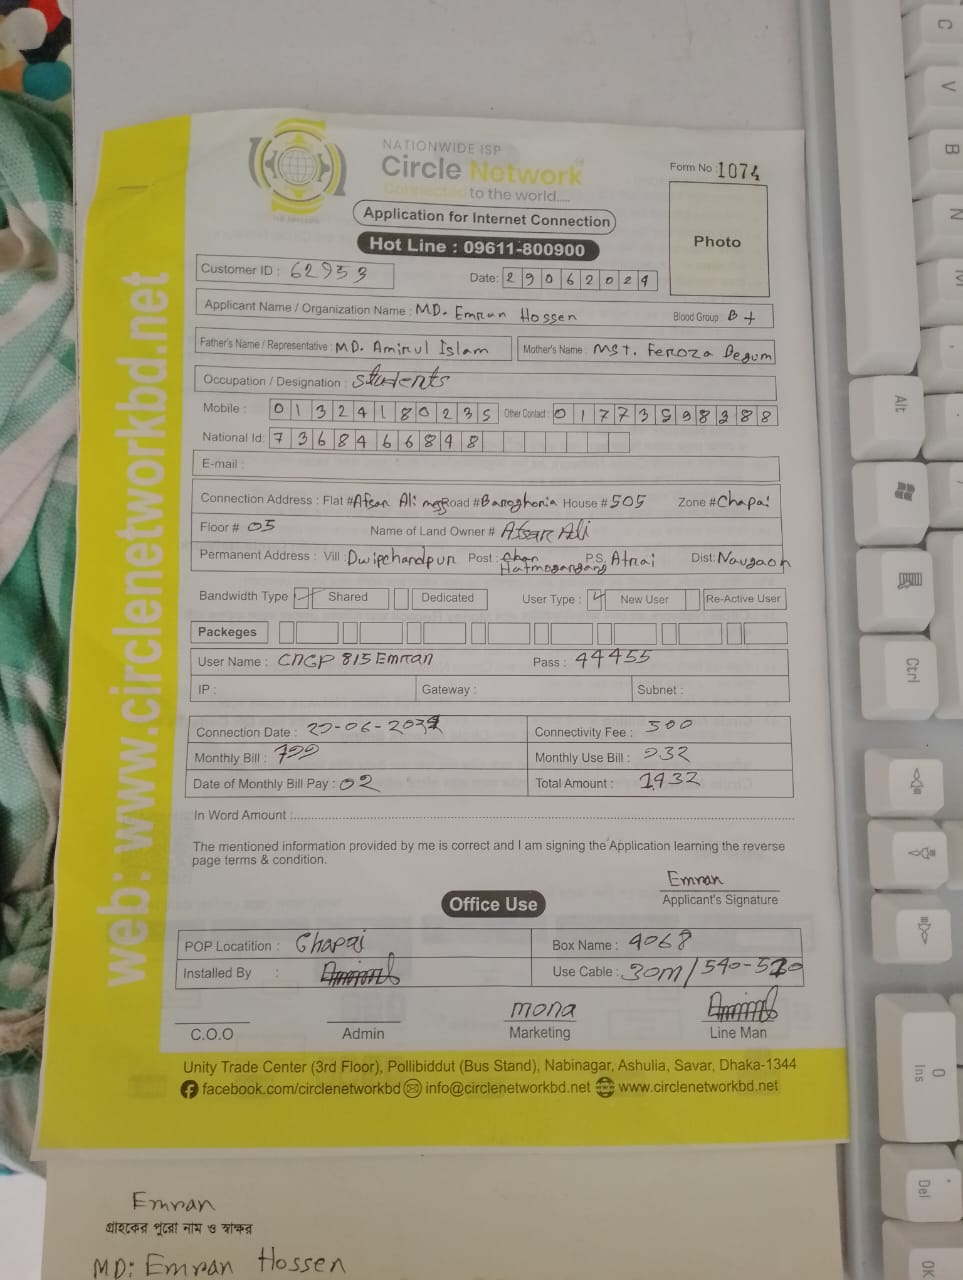 NATIONWIDE ISP
Circle Network
Connected to the world.....
Form No : 1074
Application for Internet Connection
Hot Line : 09611-800900
Photo
Customer ID : 62953
Date: 29062024
Applicant Name / Organization Name : MD. Emran Hossen Blood Group : B+
Father's Name / Representative : MD. Aminul Islam Mother's Name : Mst. Feroza Begum
Occupation / Designation : students
Mobile : 01324180235 Other Contact : 01773598388
National Id: 7368466848
E-mail :
Connection Address : Flat # Afsar Ali Road # Baroghoria House # 505 Zone # Chapai
Floor # 05 Name of Land Owner # Afsar Ali
Permanent Address : Vill : Dwipchandpur Post : P.S. Atrai Dist: Naugaon
Bandwidth Type Shared Dedicated User Type : New User Re-Active User
Packeges
User Name : CNGP815Emran Pass : 44455
IP : Gateway : Subnet :
Connection Date : Connectivity Fee : 500
Monthly Bill : Monthly Use Bill : 932
Date of Monthly Bill Pay : 02 Total Amount : 1432
In Word Amount :
The mentioned information provided by me is correct and I am signing the Application learning the reverse
page terms & condition.
Emran
Applicant's Signature
Office Use
POP Locatition : Chapai Box Name : 4068
Installed By : Use Cable : 30m/540-510
mona
C.O.O Admin Marketing Line Man
Unity Trade Center (3rd Floor), Pollibiddut (Bus Stand), Nabinagar, Ashulia, Savar, Dhaka-1344
facebook.com/circlenetworkbd info@circlenetworkbd.net www.circlenetworkbd.net
web: www.circlenetworkbd.net
Emran
গ্রাহকের পুরো নাম ও স্বাক্ষর
MD: Emran Hossen
C
V
B
N
M
Alt
Ctrl
0
Ins
Del
OK